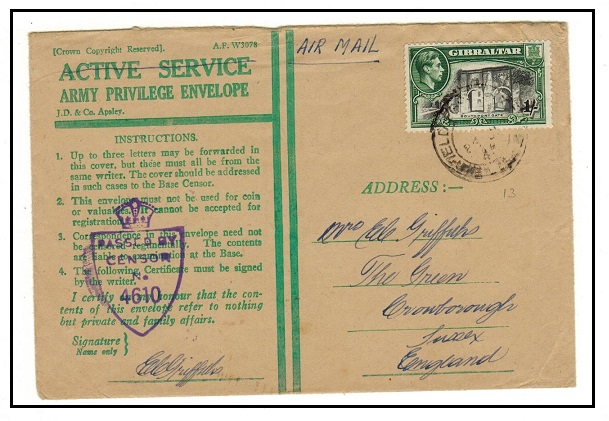 [Crown Copyright Reserved]. A.F. W3078
ACTIVE SERVICE
ARMY PRIVILEGE ENVELOPE
J.D. & Co. Apsley.
INSTRUCTIONS.
1. Up to three letters may be forwarded in
this cover, but these must all be from the
same writer. The cover should be addressed
in such cases to the Base Censor.
2. This envelope must not be used for coin
or valuables. It cannot be accepted for
registration.
3. Correspondence in this envelope need not
be censored regimentally. The contents
are liable to examination at the Base.
4. The following Certificate must be signed
by the writer:
I certify on my honour that the con-
tents of this envelope refer to nothing
but private and family affairs.
Signature }
Name only }
PASSED BY
CENSOR
No.
4610
AIR MAIL
GIBRALTAR
SOUTHPORT GATE
1/-
FIELD
13
ADDRESS:—
Mrs Griffiths
The Green
Crowborough
Sussex
England
Griffiths